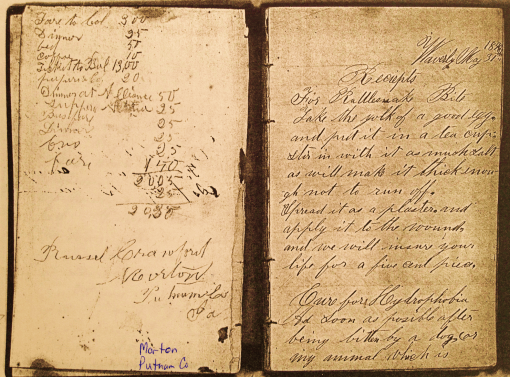 Fare to Col 3.00
Dinner 25
bed 50
10
Ticket to Buf 13.00
papers &c 20
Dinner at Alliance 50
Supper 25
25
Dinner 25
Bus 25
fare
1 40
20 05
25
20 30
Russel Crawfort
Morton
Putnam Co
Morton
Putnam Co
Waverly May 31st
Receipts
For Rattlesnake Bite
Take the yolk of a good egg
and put it in a tea cup.
Stir in with it as much salt
as will make it thick enou
gh not to run off.
Spread it as a plaster and
apply it to the wound
and we will insure your
life for a five cent piece.
Cure for Hydrophobia
As soon as posible after
being bitten by a dog or
any animal which is